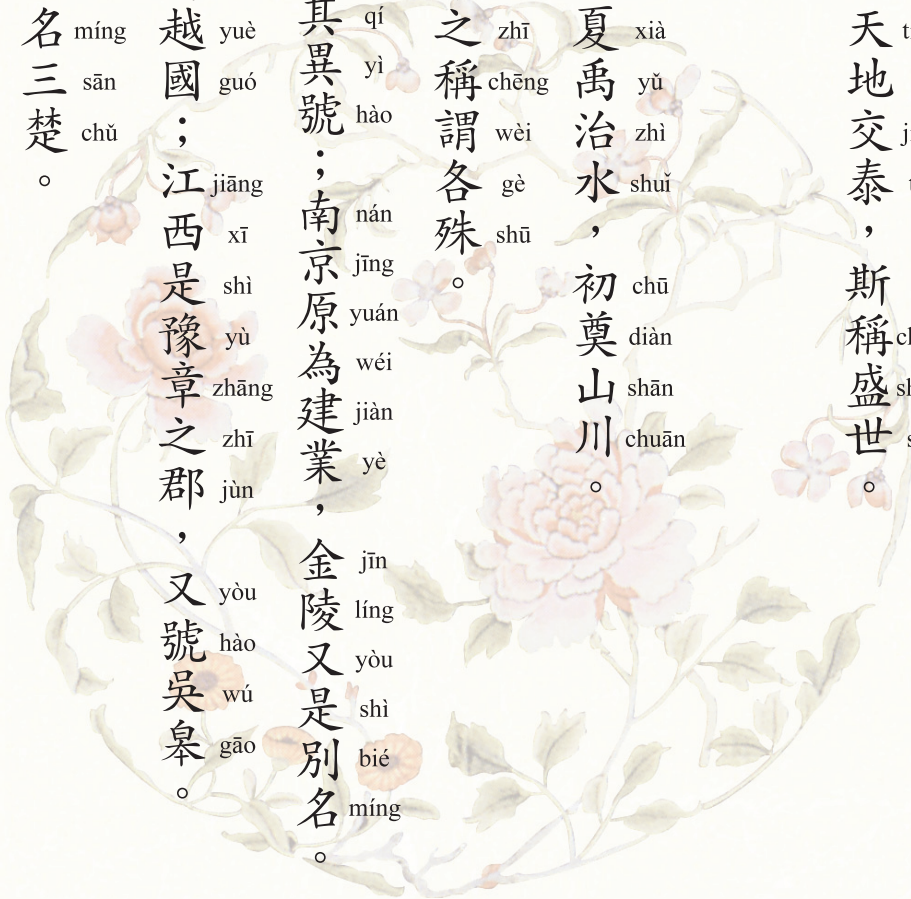 天地交泰，斯稱盛世。
夏禹治水，初奠山川。
xià yǔ zhì shuǐ chū diàn shān chuān
之稱謂各殊。
zhī chēng wèi gè shū
其異號；南京原為建業，金陵又是別名。
qí yì hào nán jīng yuán wéi jiàn yè jīn líng yòu shì bié míng
越國；江西是豫章之郡，又號吳皋。
yuè guó jiāng xī shì yù zhāng zhī jùn yòu hào wú gāo
名三楚。
míng sān chǔ